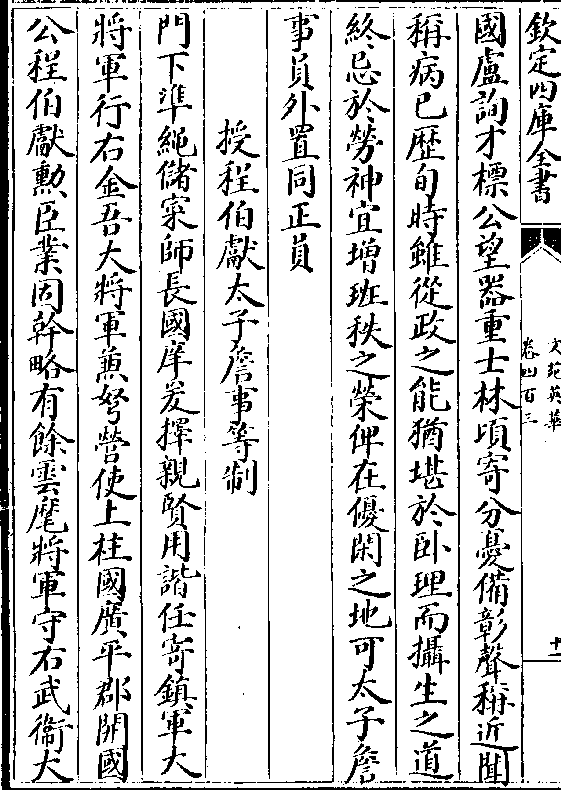 欽定四庫全書
文苑英華
卷四百三
十一
國盧詢才標公望器重士林頃寄分憂備彰聲稱近聞
稱病已歷旬時雖從政之能猶堪於卧理而攝生之道
終忌於勞神宜增班秩之榮俾在優閑之地可太子詹
事員外置同正員
授程伯獻太子詹事等制
門下準繩儲寀師長國庠爰擇親賢用諧任寄鎮軍大
將軍行右金吾大將軍兼弩營使上柱國廣平郡開國
公程伯獻勲臣業固幹略有餘雲麾將軍守右武衞大